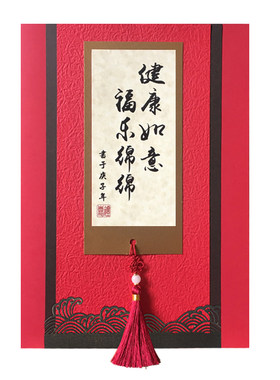 健康如意
福乐绵绵
书于庚子年